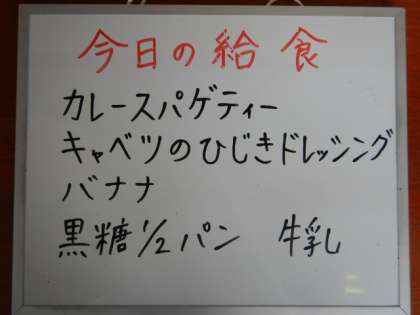 今日の給食
カレースパゲティー
キャベツのひじきドレッシング
バナナ
黒糖1/2パン 牛乳